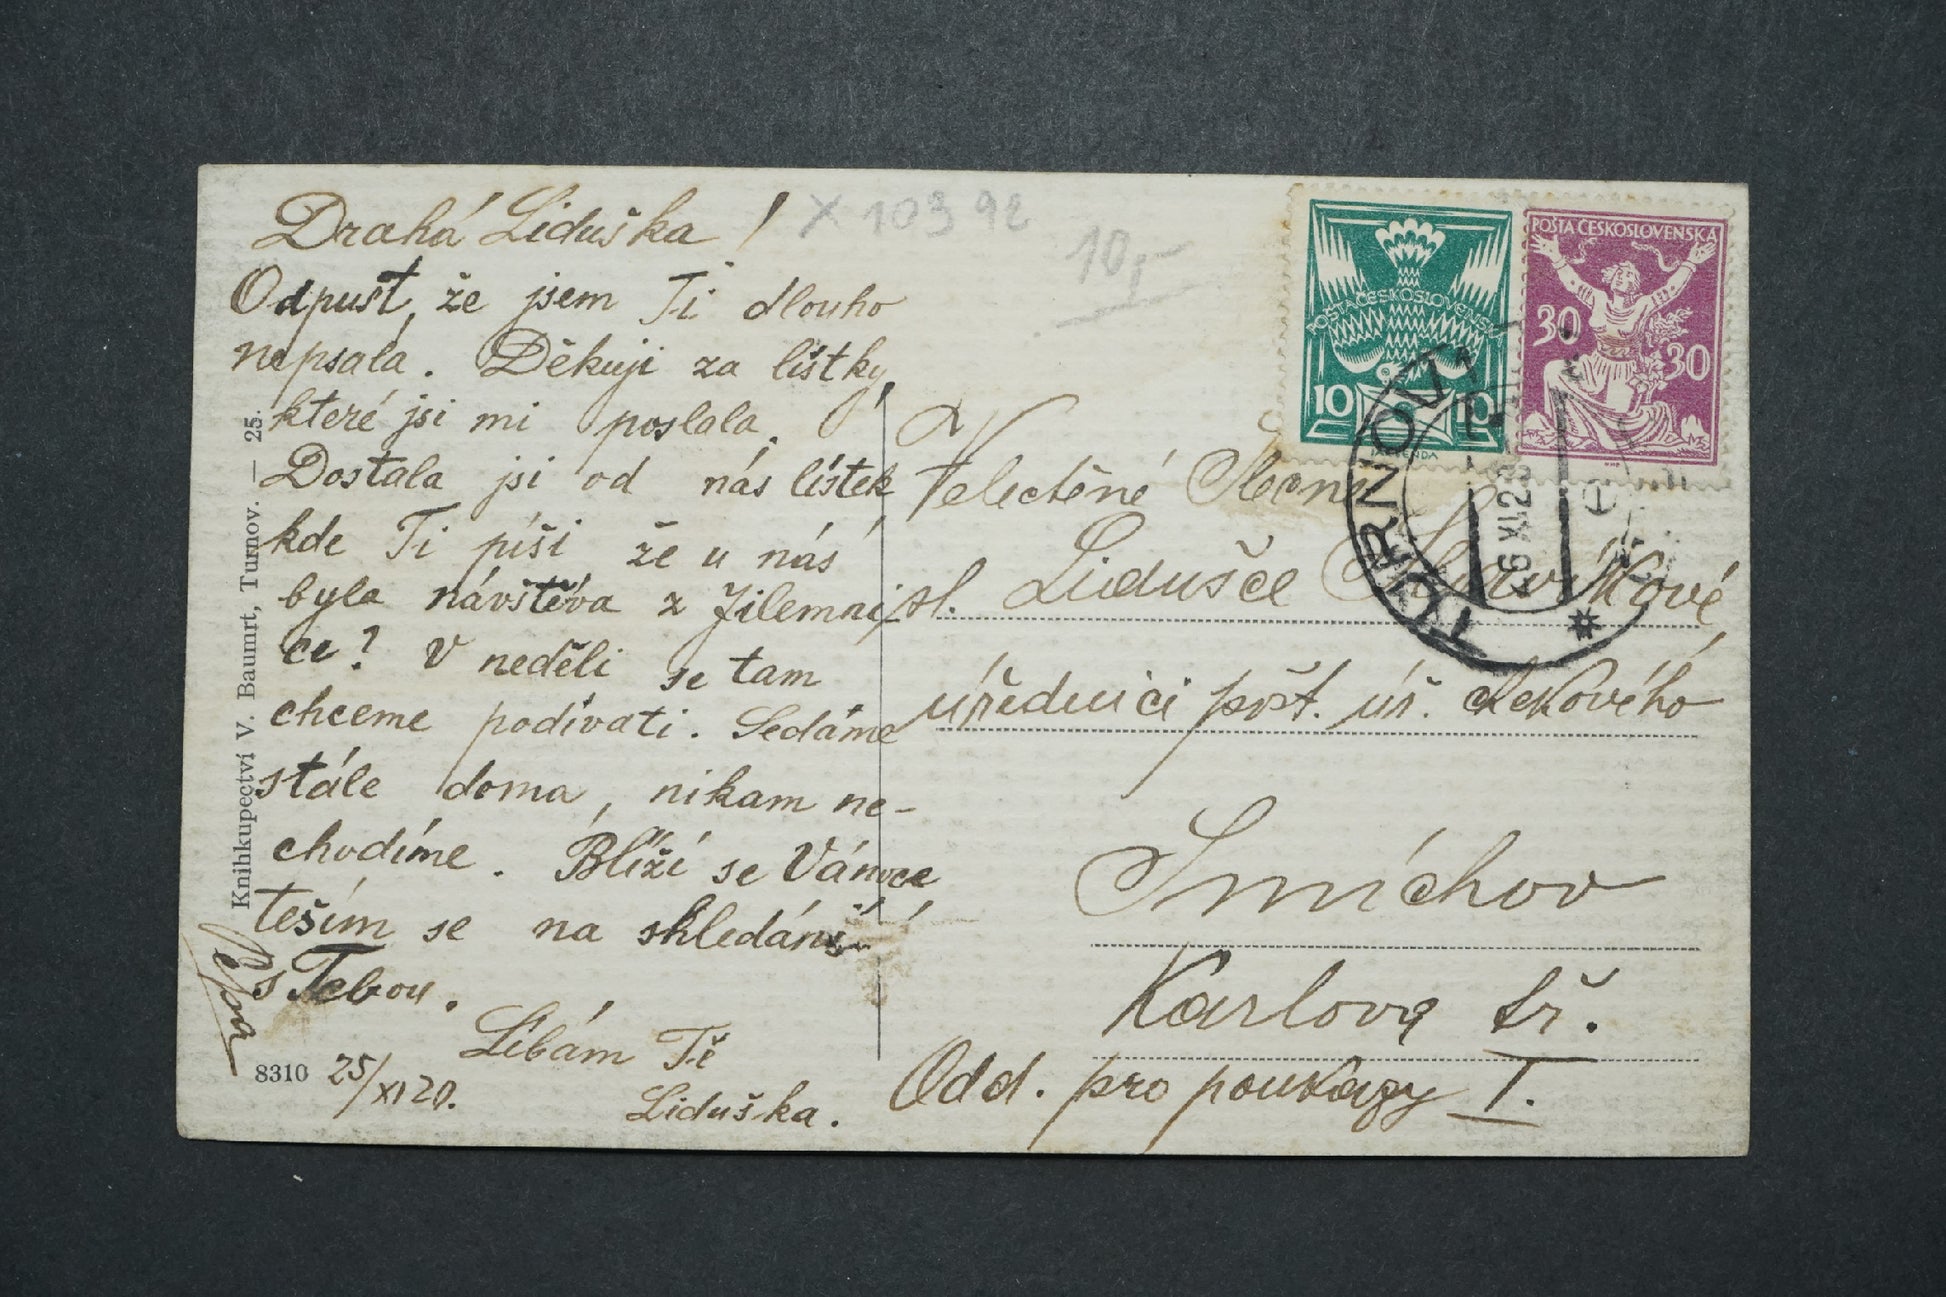 Drahá Liduška!
Odpusť, že jsem Ti dlouho
nepsala. Děkuji za lístky,
které jsi mi poslala.
Dostala jsi od nás lístek
kde Ti píši že u nás
byla návštěva z Jilemni
ce? V neděli se tam
chceme podívati. Sedáme
stále doma, nikam ne-
chodíme. Blíží se Vánoce
teším se na shledání
s Tebou.
Líbám Tě
Liduška.
25/XI 20.
8310
Knihkupectví V. Baumrt, Turnov. — 25.
X 10392
10,-
POŠTA ČESKOSLOVENSKÁ
10 10
POŠTA ČESKOSLOVENSKÁ
30 30
TURNOV 1
26 XI 20
Velectěné Slečně
sl. Lidušce
úřednici pošt. úř. čekového
Smíchov
Karlova tř.
Odd. pro poukazy I.